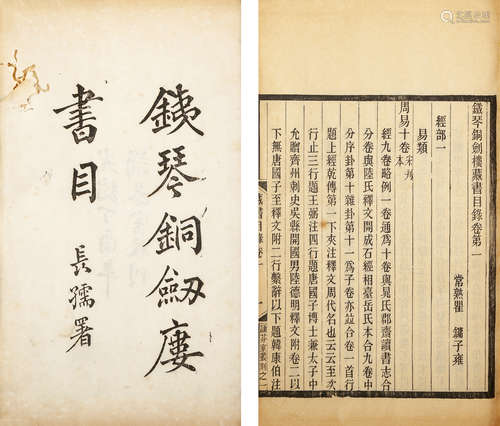 銕琴銅劍廔
書目
長孺署
鐵琴銅劍樓藏書目錄卷第一
常熟瞿 鏞子雍
經部一
易類
周易十卷宋刋本
經九卷略例一卷通為十卷與晁氏郡齋讀書志合
分卷與陸氏釋文開成石經相臺岳氏本合九卷中
分序卦第十雜卦第十一為子卷亦竝合卷一首行
題上經乾傳第一下夾注釋文周代名也云云至次
行止三行題王弼注四行題唐國子博士兼太子中
允贈齊州刺史吳縣開國男陸德明釋文附卷二以
下無唐國子至釋文附二行繫辭以下題韓康伯注
藏書目錄卷一
誦芬室叢刊之二